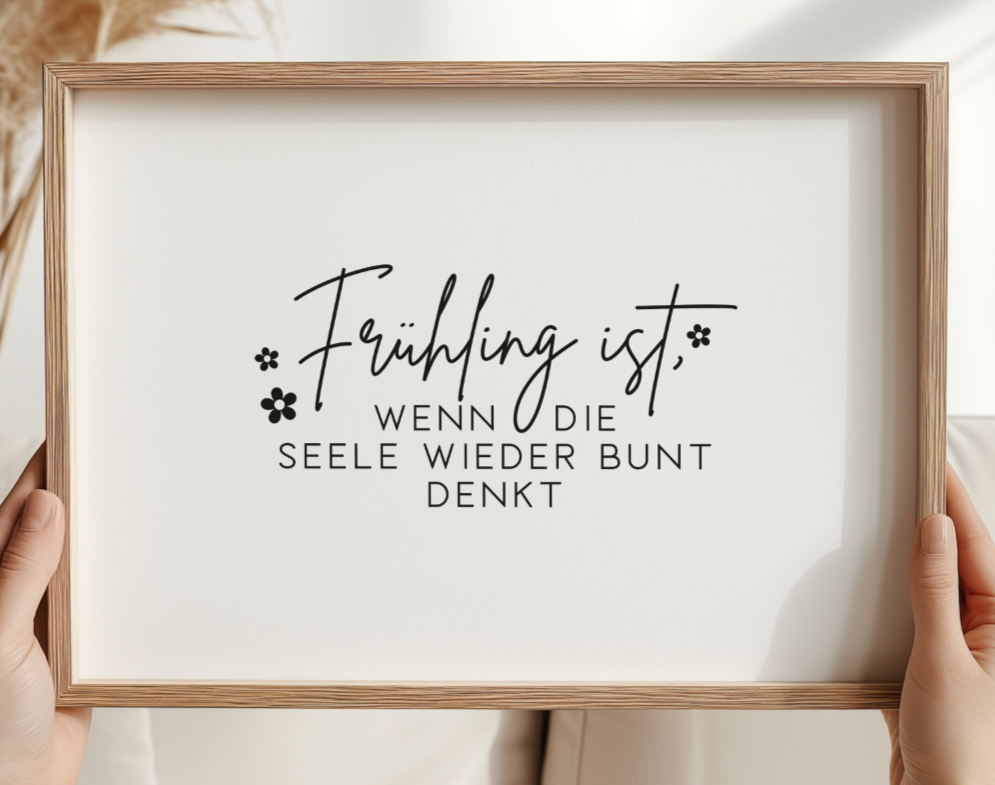 Frühling ist,
WENN DIE
SEELE WIEDER BUNT
DENKT